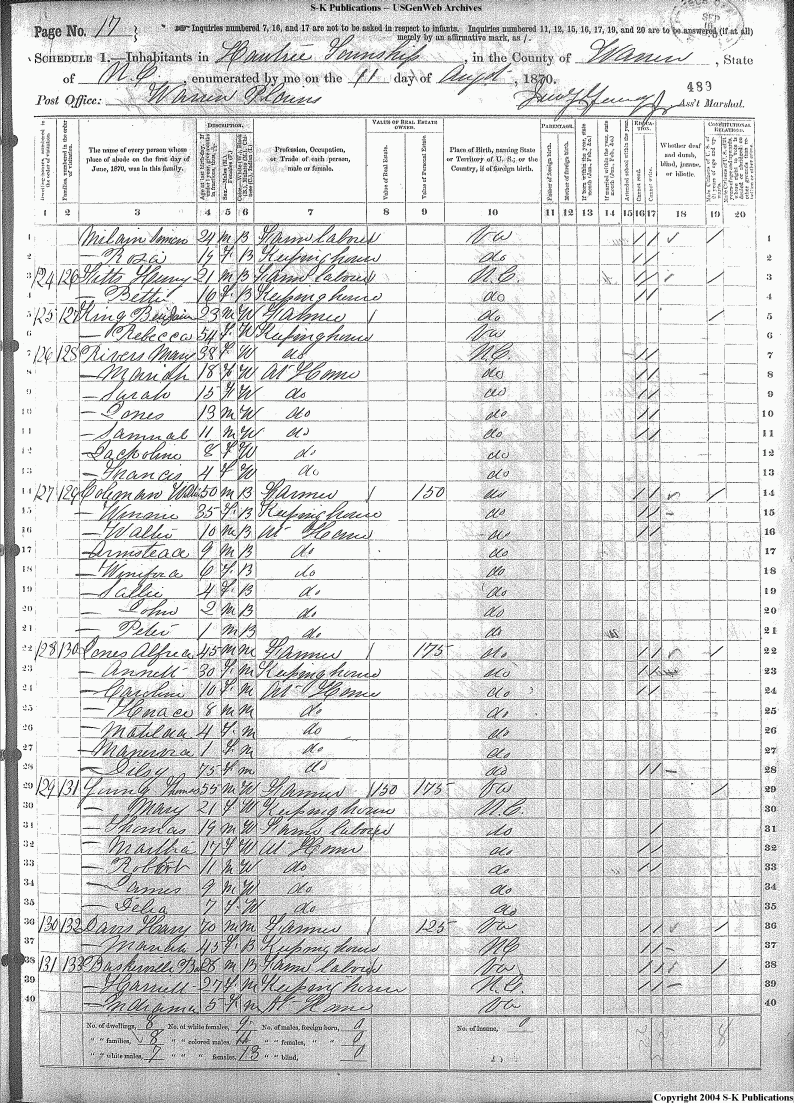 S-K Publications – USGenWeb Archives
Page No. 17
Inquiries numbered 7, 16, and 17 are not to be asked in respect to infants. Inquiries numbered 11, 12, 15, 16, 17, 19, and 20 are to be answered (if at all) merely by an affirmative mark, as /.
SCHEDULE 1.—Inhabitants in Hawtree Township, in the County of Warren, State
of N.C., enumerated by me on the 11 day of Augst, 1870.
Post Office: Warren Plains
489
Ass't Marshal.
Dwelling-houses, numbered in the order of visitation.
Families, numbered in the order of visitation.
The name of every person whose place of abode on the first day of June, 1870, was in this family.
DESCRIPTION.
Profession, Occupation, or Trade of each person, male or female.
VALUE OF REAL ESTATE OWNED.
Value of Real Estate.
Value of Personal Estate.
Place of Birth, naming State or Territory of U. S.; or the Country, if of foreign birth.
PARENTAGE.
Father of foreign birth.
Mother of foreign birth.
If born within the year, state month (Jan., Feb., &c.)
If married within the year, state month (Jan., Feb., &c.)
Attended school within the year.
EDUCATION.
Cannot read.
Cannot write.
Whether deaf and dumb, blind, insane, or idiotic.
CONSTITUTIONAL RELATIONS.
1 2 3 4 5 6 7 8 9 10 11 12 13 14 15 16 17 18 19 20
1 Milam Simon 24 M B Farm laborer Va / / / 1
2 — Rosa 19 F B Keeping house do / / 2
3 124 126 Fitts Henry 21 M B Farm laborer N.C. / / / 3
4 — Bettie 16 F B Keeping house do / / 4
5 125 127 King Benjamin 23 M W Farmer do / 5
6 Rebecca 54 F W Keeping house Va 6
7 126 128 Rivers Mary 38 F W do N.C. / / 7
8 — Mariah 18 F W At Home do / / 8
9 — Sarah 15 F W do do / / 9
10 — Jones 13 M W do do / / 10
11 — Samuel 11 M W do do / / 11
12 — Jackoline 8 F W do do 12
13 — Francis 4 F W do do 13
14 127 129 Coleman 50 M B Farmer 150 do / / / 14
15 — Winnie 35 F B Keeping house do / / 15
16 — Walter 10 M B At Home do / / 16
17 — Armstead 9 M B do do 17
18 — Winifra 6 F B do do 18
19 — Sallie 4 F B do do 19
20 — John 2 M B do do 20
21 — Peter 1 M B do do 21
22 128 130 Jones Alfred 45 M M Farmer 175 do / / / 22
23 — Annett 30 F M Keeping house do / / 23
24 — Caroline 10 F M At Home do / / 24
25 — Horace 8 M M do do 25
26 — Matilda 4 F M do do 26
27 — Manerva 1 F M do do 27
28 — Dilsy 75 F M do do / / 28
29 129 131 Young Thomas 55 M W Farmer 150 175 Va / 29
30 — Mary 21 F W Keeping house N.C. 30
31 — Thomas 19 M W Farm laborer do / 31
32 — Martha 17 F W At Home do / / 32
33 — Robbert 11 M W do do / / 33
34 — James 9 M W do do 34
35 — Delia 7 F W do do 35
36 130 132 Davis Hary 70 M M Farmer 125 Va / / / 36
37 — Mariah 45 F B Keeping house N.C / / 37
38 131 133 Baskerville 28 M B Farm laborer Va / / / 38
39 — Harriett 27 F M Keeping house N.C. / / 39
40 — Indiana 5 F M At Home Va 40
No. of dwellings, 8 No. of white females, 9 No. of males, foreign born, 0 No. of insane, 0
" " families, 8 " " colored males, 11 " " females, " " 0 8
" " white males, 7 " " " females, 13 " " blind, 0
Copyright 2004 S-K Publications